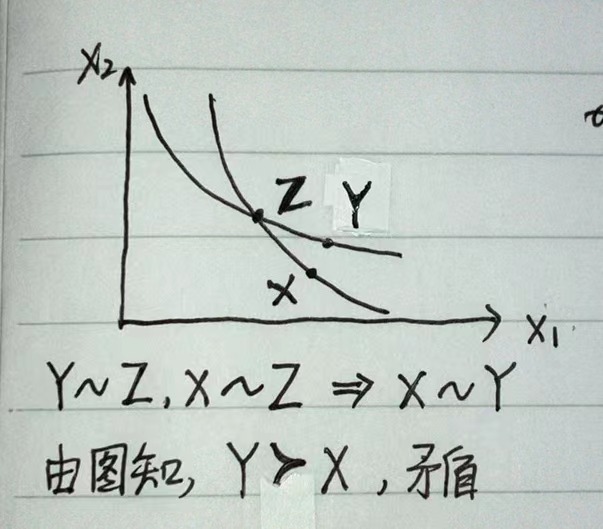 X₂
Z Y
X
X₁
Y~Z, X~Z ⇒ X~Y
由图知, Y≻X, 矛盾